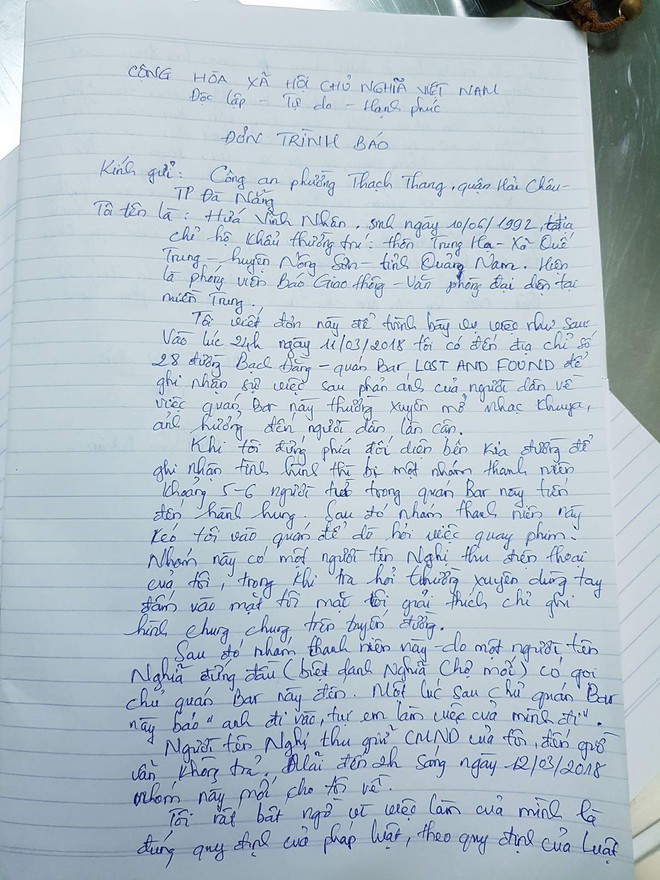 CỘNG HÒA XÃ HỘI CHỦ NGHĨA VIỆT NAM
Độc lập - Tự do - Hạnh phúc
ĐƠN TRÌNH BÁO
Kính gửi: Công an phường Thạch Thang, quận Hải Châu -
TP Đà Nẵng
Tôi tên là: Hứa Vĩnh Nhân, sinh ngày 10/06/1992, địa
chỉ hộ khẩu thường trú: thôn Trung Hạ - Xã Quế
Trung - huyện Nông Sơn - tỉnh Quảng Nam. Hiện
là phóng viên Báo Giao thông - Văn phòng đại diện tại
miền Trung.
Tôi viết đơn này để trình bày vụ việc như sau
Vào lúc 24h ngày 11/03/2018 tôi có đến địa chỉ số
28 đường Bạch Đằng - quán Bar LOST AND FOUND để
ghi nhận sự việc sau phản ánh của người dân về
việc quán Bar này thường xuyên mở nhạc khuya,
ảnh hưởng đến người dân lân cận.
Khi tôi đứng phía đối diện bên kia đường để
ghi nhận tình hình thì bị một nhóm thanh niên
khoảng 5-6 người từ trong quán Bar này tiến
đến hành hung. Sau đó nhóm thanh niên này
kéo tôi vào quán để dò hỏi việc quay phim.
Nhóm này có một người tên Nghị thu điện thoại
của tôi, trong khi tra hỏi thường xuyên dùng tay
đấm vào mặt tôi mặc tôi giải thích chỉ ghi
hình chung chung, trên tuyến đường.
Sau đó nhóm thanh niên này - do một người tên
Nghĩa đứng đầu (biệt danh Nghĩa Chợ mới) có gọi
chủ quán Bar này đến. Một lúc sau chủ quán Bar
này bảo "anh đi vào, tụi em làm việc của mình đi".
Người tên Nghị thu giữ CMND của tôi, đến giờ
vẫn không trả. Mãi đến 2h sáng ngày 12/03/2018
nhóm này mới cho tôi về.
Tôi rất bất ngờ vì việc làm của mình là
đúng quy định của pháp luật, theo quy định của Luật